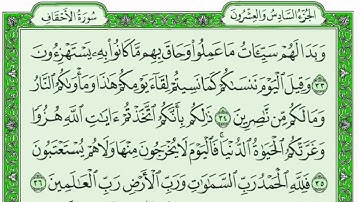 الجزء السادس والعشرون
سورة الأحقاف
وَبَدَا لَهُمْ سَيِّـَٔاتُ مَا عَمِلُوا۟ وَحَاقَ بِهِم مَّا كَانُوا۟ بِهِۦ يَسْتَهْزِءُونَ
٣٣ وَقِيلَ ٱلْيَوْمَ نَنسَىٰكُمْ كَمَا نَسِيتُمْ لِقَآءَ يَوْمِكُمْ هَٰذَا وَمَأْوَىٰكُمُ ٱلنَّارُ
وَمَا لَكُم مِّن نَّٰصِرِينَ ٣٤ ذَٰلِكُم بِأَنَّكُمُ ٱتَّخَذْتُمْ ءَايَٰتِ ٱللَّهِ هُزُوًا
وَغَرَّتْكُمُ ٱلْحَيَوٰةُ ٱلدُّنْيَا ۚ فَٱلْيَوْمَ لَا يُخْرَجُونَ مِنْهَا وَلَا هُمْ يُسْتَعْتَبُونَ
٣٥ فَلِلَّهِ ٱلْحَمْدُ رَبِّ ٱلسَّمَٰوَٰتِ وَرَبِّ ٱلْأَرْضِ رَبِّ ٱلْعَٰلَمِينَ ٣٦